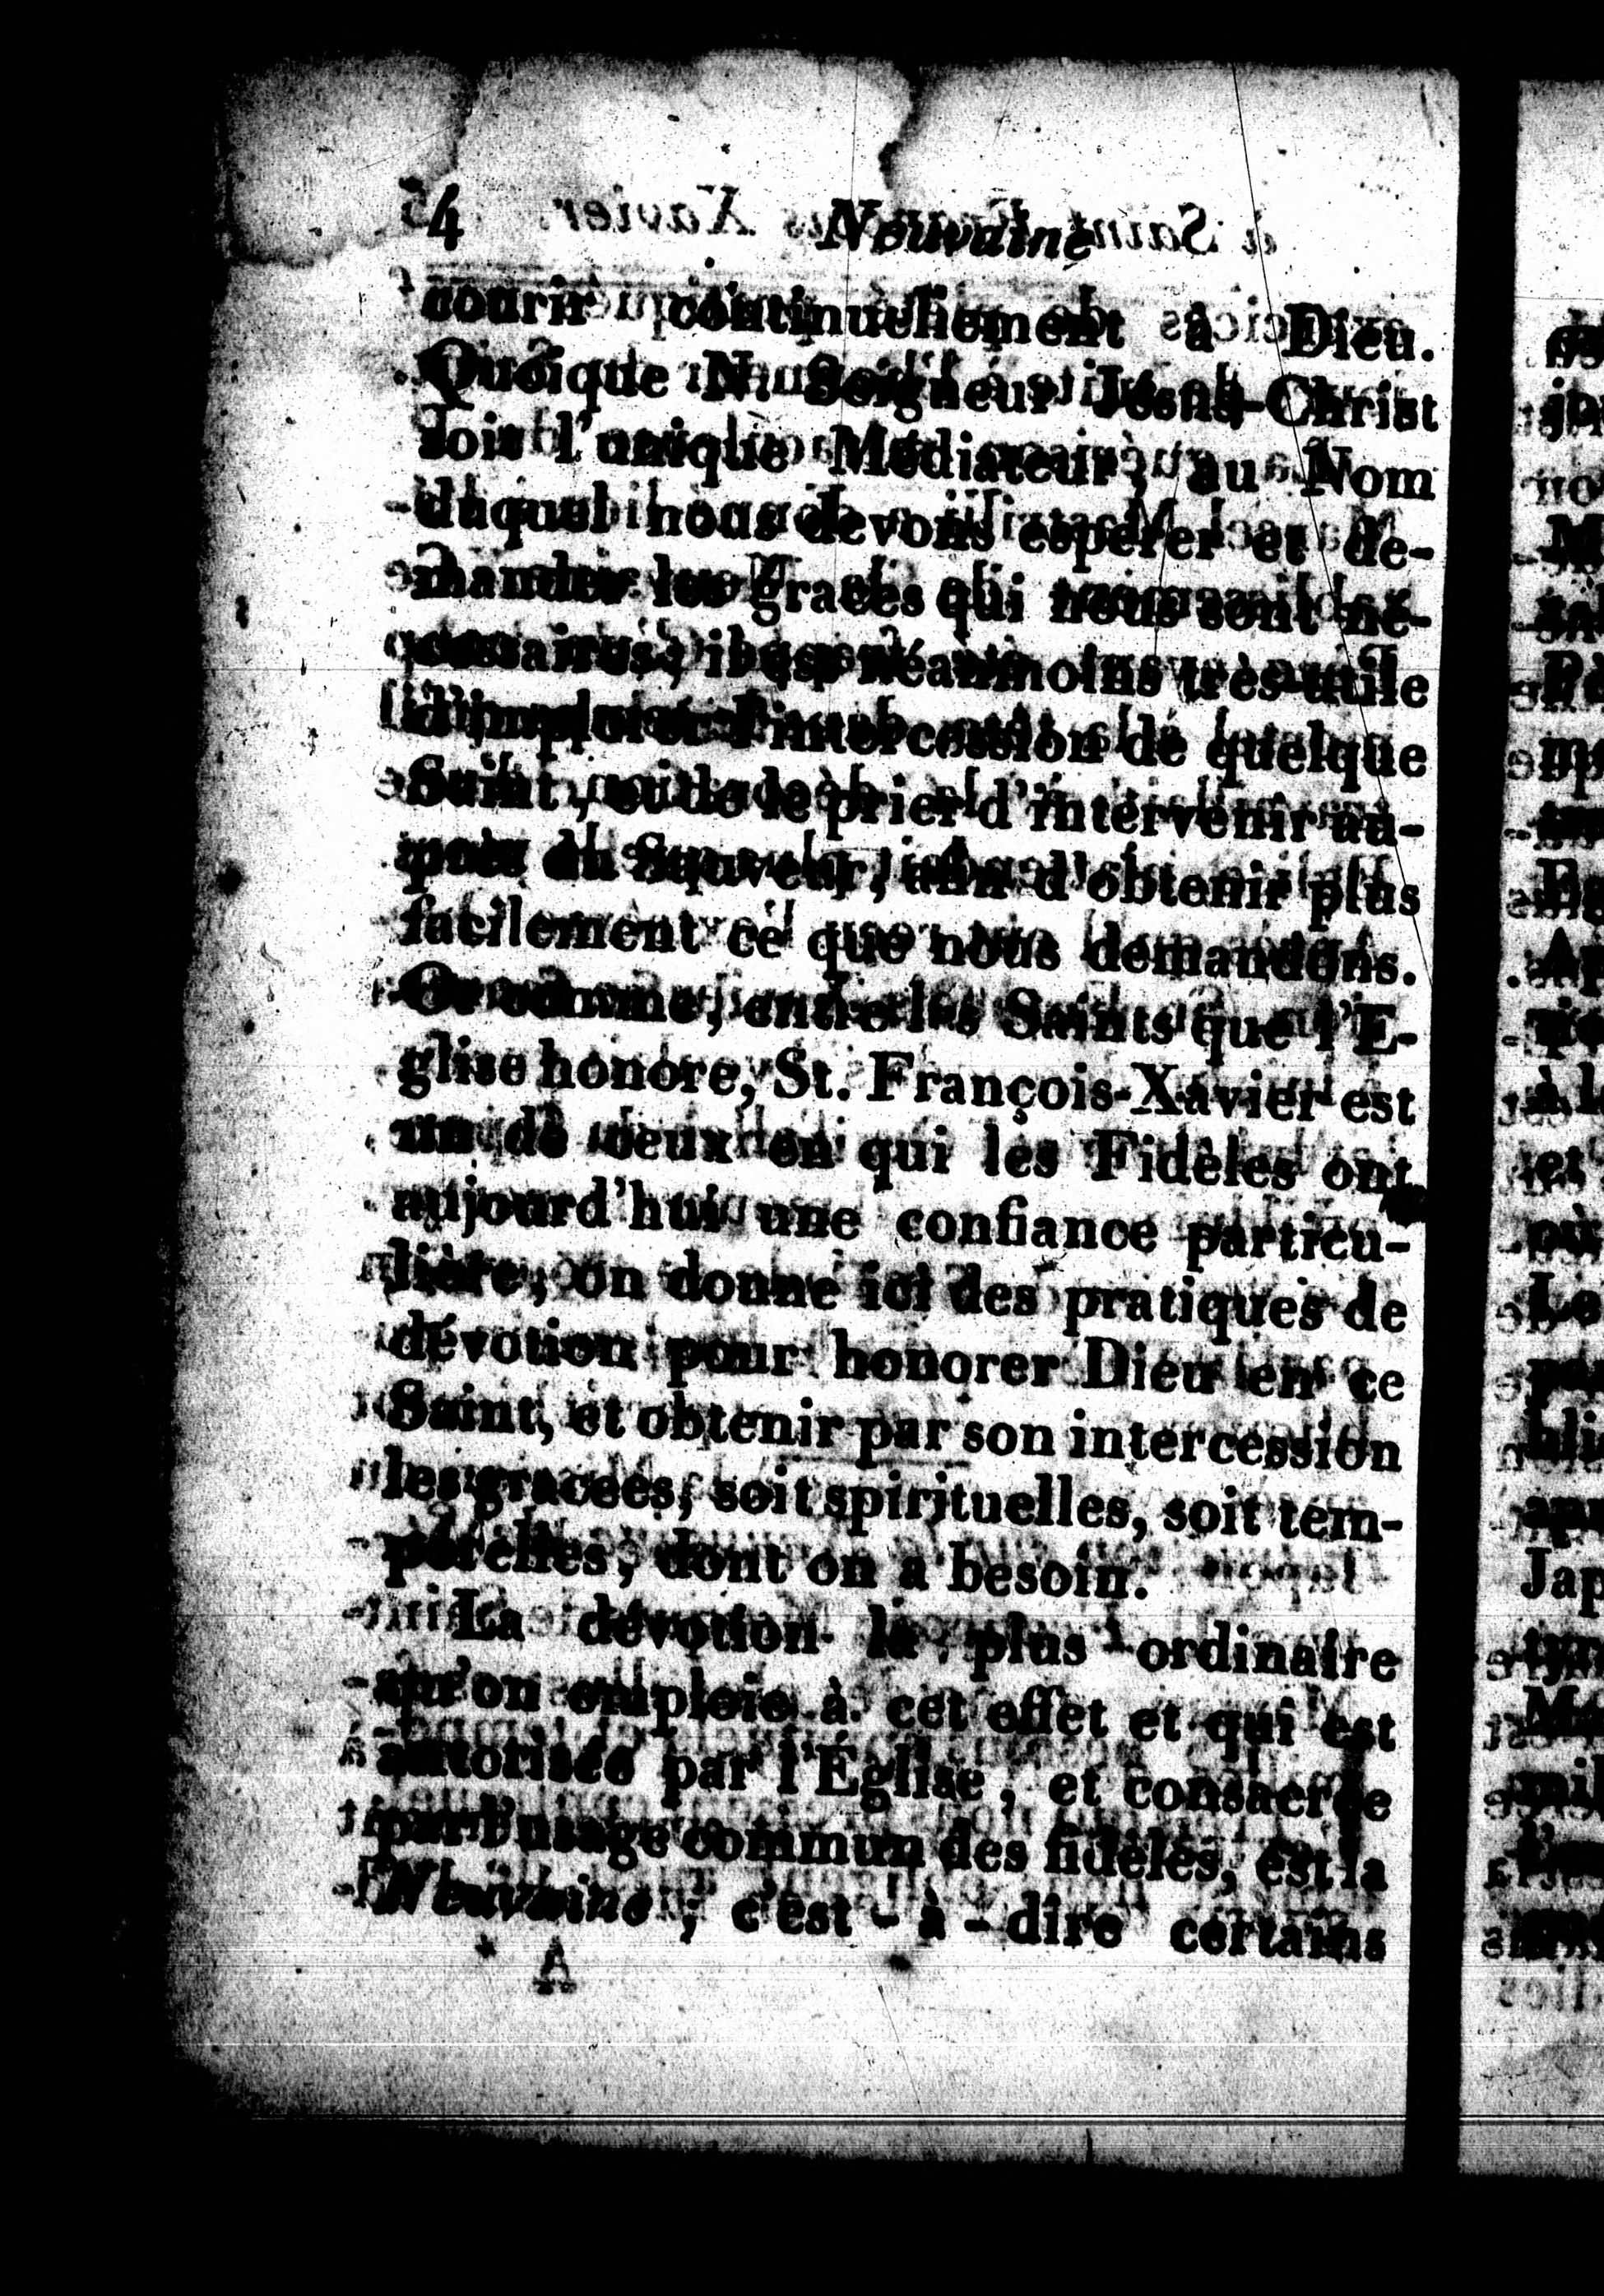 4 Neuvaine
courir continuellement à Dieu.
Quoique N. Seigneur Jésus-Christ
soit l'unique Médiateur, au Nom
duquel nous devons espérer et de-
mander les graces qui nous sont né-
cessaires, il est néanmoins très-utile
d'implorer l'intercession de quelque
Saint, et de le prier d'intervenir au-
près du Sauveur, afin d'obtenir plus
facilement ce que nous demandons.
Or comme, entre les Saints que l'E-
glise honore, St. François-Xavier est
un de ceux en qui les Fidèles ont
aujourd'hui une confiance particu-
lière, on donne ici des pratiques de
dévotion pour honorer Dieu en ce
Saint, et obtenir par son intercession
les gracees, soit spirituelles, soit tem-
porelles, dont on a besoin.
La dévotion la plus ordinaire
qu'on emploie à cet effet et qui est
autorisée par l'Église, et consacrée
par l'usage commun des fidèles, est la
Neuvaine; c'est-à-dire certains
A